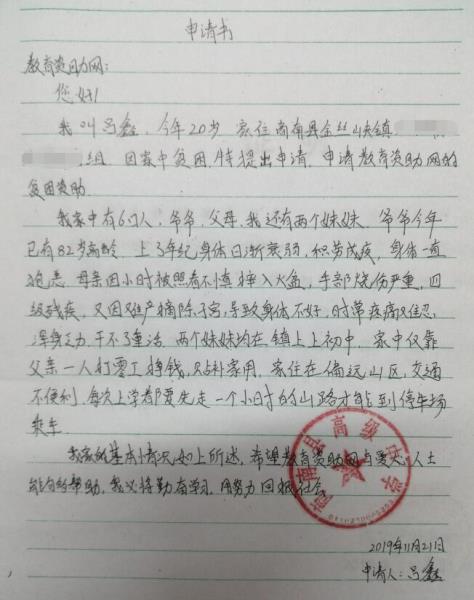 申请书
教育资助网:
您好!
我叫吕鑫,今年20岁,家住商南县金丝峡镇
组,因家中贫困,特提出申请,申请教育资助网的
贫困资助。
我家中有6口人,爷爷,父母,我还有两个妹妹,爷爷今年
已有82岁高龄,上了年纪身体日渐衰弱,积劳成疾,身体一直
抱恙,母亲因小时被照看不慎掉入火盆,手部烧伤严重,四
级残疾,又因生产摘除子宫,导致身体不好,时常疼痛难忍,
浑身乏力,干不了重活,两个妹妹均在镇上上初中,家中仅靠
父亲一人打零工挣钱,贴补家用,家住在偏远山区,交通
不便利,每次上学都要先走一个小时的山路才能到停车场
乘车。
我家的基本情况如上所述,希望教育资助网与爱心人士
能给予帮助,我必将勤奋学习,用努力回报社会。
商南县高级中学
2019年11月21日
申请人:吕鑫